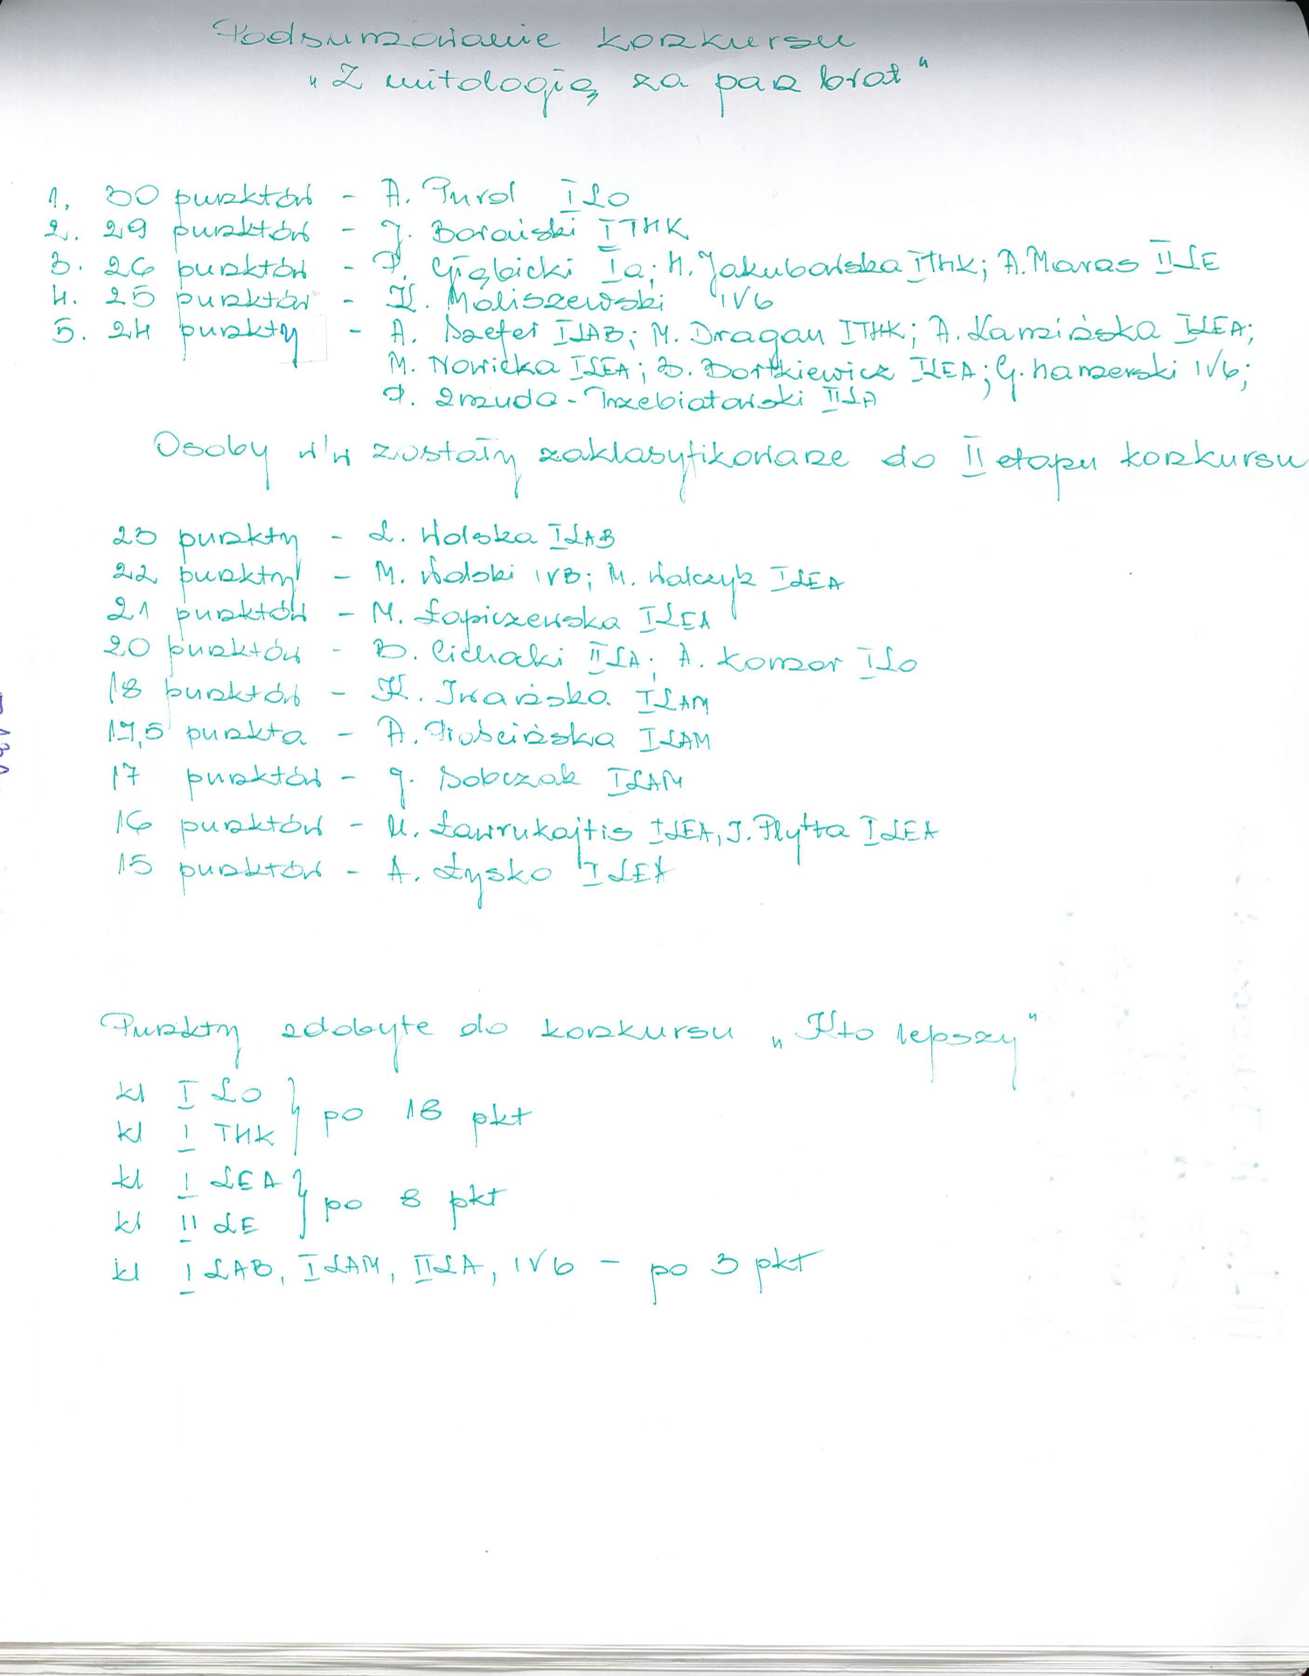 Podsumowanie konkursu
"Z mitologią za pan brat"
1. 30 punktów - A. Purol I LO
2. 29 punktów - J. Borański I THK
3. 26 punktów - P. Głąbicki Ia; H. Jakubowska I THK; A. Maras II LE
4. 25 punktów - K. Maliszewski IVb
5. 24 punkty - A. Szefer I LAB; M. Dragan I THK; A. Kamińska I LEA;
M. Nowicka I LEA; B. Bortkiewicz I LEA; G. Kamzerski IVb;
P. Gruda-Trzebiatowski II LA
Osoby w/w zostały zaklasyfikowane do II etapu konkursu
23 punkty - L. Wolska I LAB
22 punkty - M. Wolski IVB; M. Walczyk I LEA
21 punktów - M. Łapiczewska I LEA
20 punktów - B. Cichocki II LA; A. Komzor I LO
18 punktów - K. Iwańska I LAM
17,5 punkta - A. I LAM
17 punktów - J. Sobczak I LAM
16 punktów - U. Ławrukajtis I LEA, J. Plytta I LEA
15 punktów - A. Łysko I LEA
Punkty zdobyte do konkursu "Kto lepszy"
kl I LO
kl I THK } po 18 pkt
kl I LEA
kl II LE } po 8 pkt
kl I LAB, I LAM, II LA, IVb - po 3 pkt